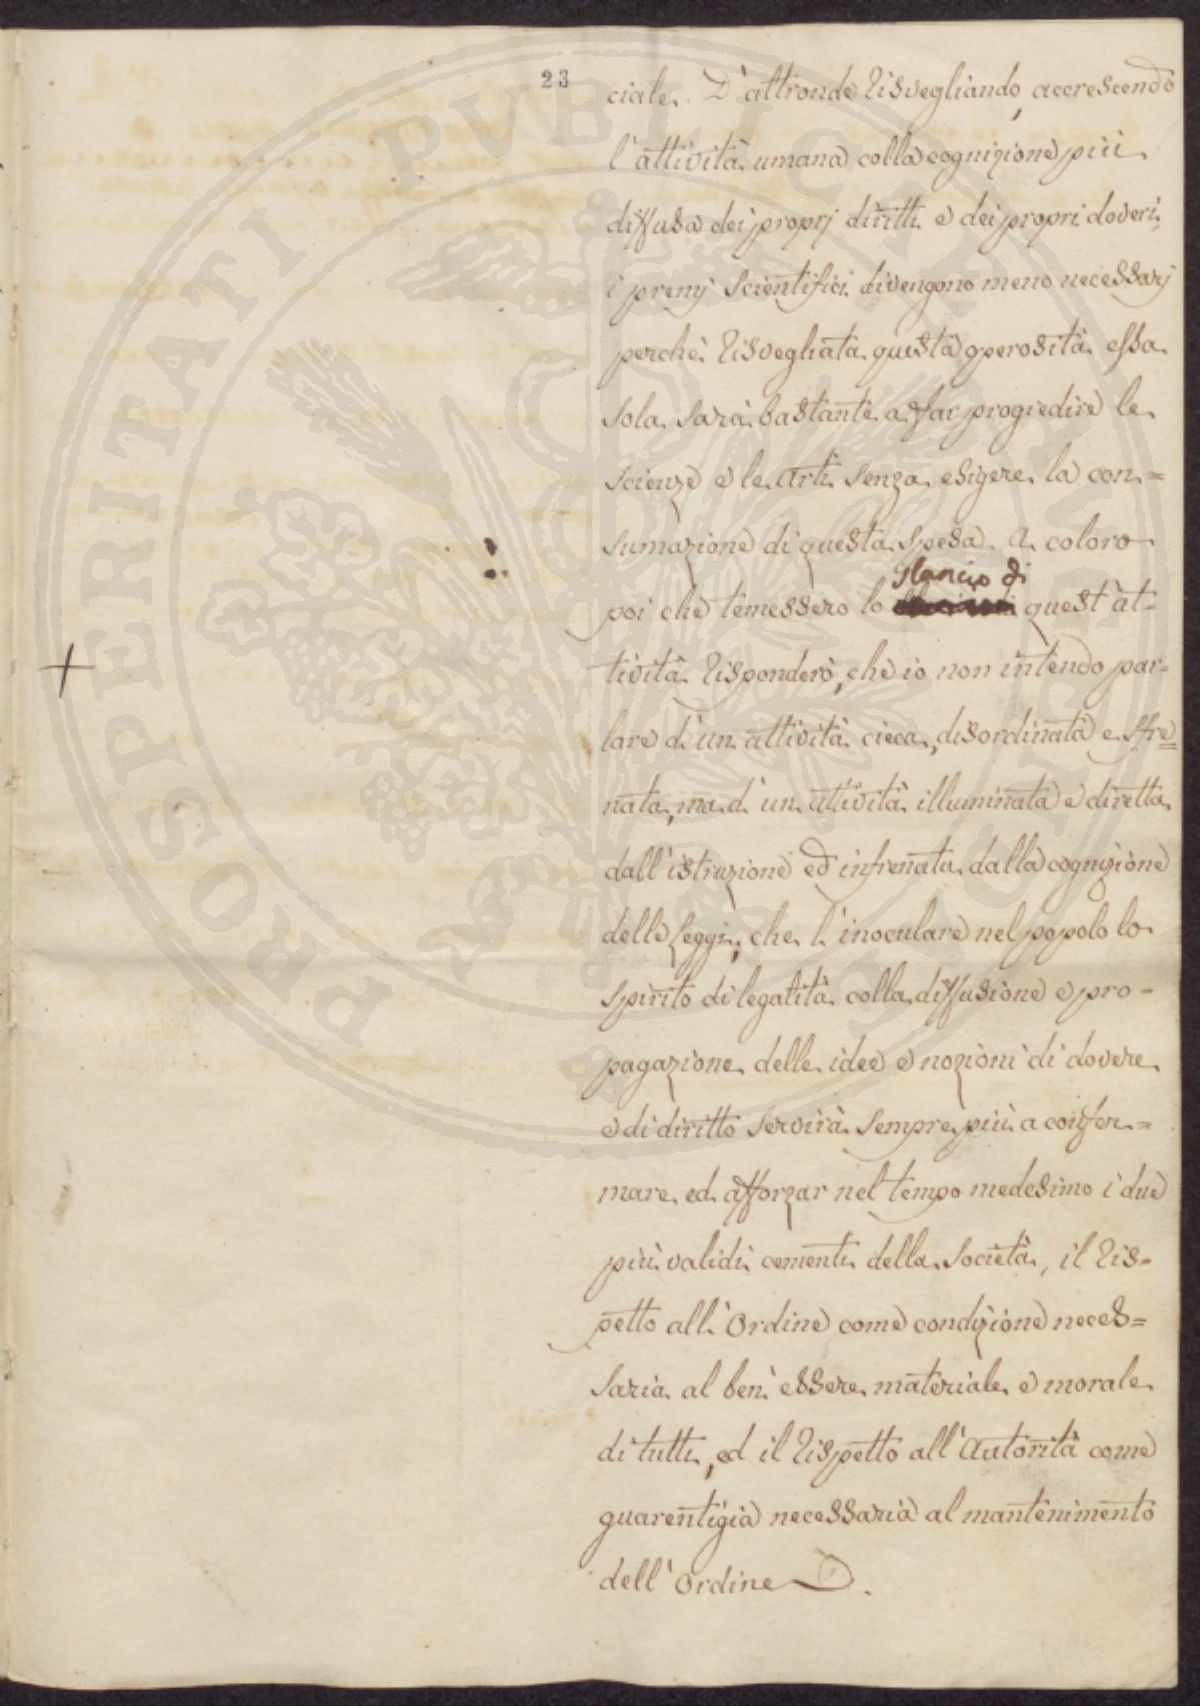 23
ciale. D'altronde risvegliando, accrescendo
l'attività umana colla cognizione più
diffusa dei proprj diritti e dei proprj doveri,
i premj scientifici divengono meno necessarj
perchè risvegliata questa operosità essa
sola sarà bastante a far progredire le
scienze e le arti senza esigere la con=
sumazione di questa spesa. A coloro
slancio di
poi che temessero lo quest'at-
tività risponderò, che io non intendo par-
lare d'un attività cieca, disordinata e sfre=
nata, ma d'un attività illuminata e diretta
dall'istruzione ed infrenata dalla cognizione
delle Leggi; che l'inoculare nel popolo lo
spirito di legalità colla diffusione e pro-
pagazione delle idee e nozioni di dovere
e di diritto servirà sempre più a confer=
mare ed afforzar nel tempo medesimo i due
più validi cementi della Società, il ris-
petto all'Ordine come condizione neces=
saria al ben'essere materiale e morale
di tutti, ed il rispetto all'Autorità come
guarentigia necessaria al mantenimento
dell'Ordine.
PROSPERITATI PUBLICAE